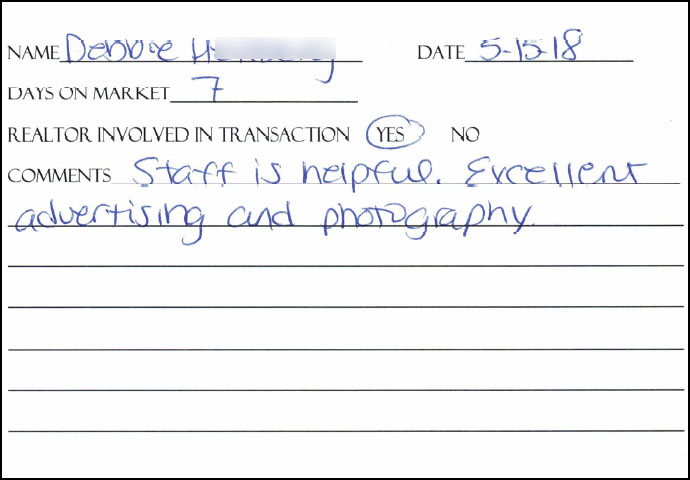 NAME Debbie
DATE 5-15-18
DAYS ON MARKET 7
REALTOR INVOLVED IN TRANSACTION YES NO
COMMENTS Staff is helpful. Excellent
advertising and photography